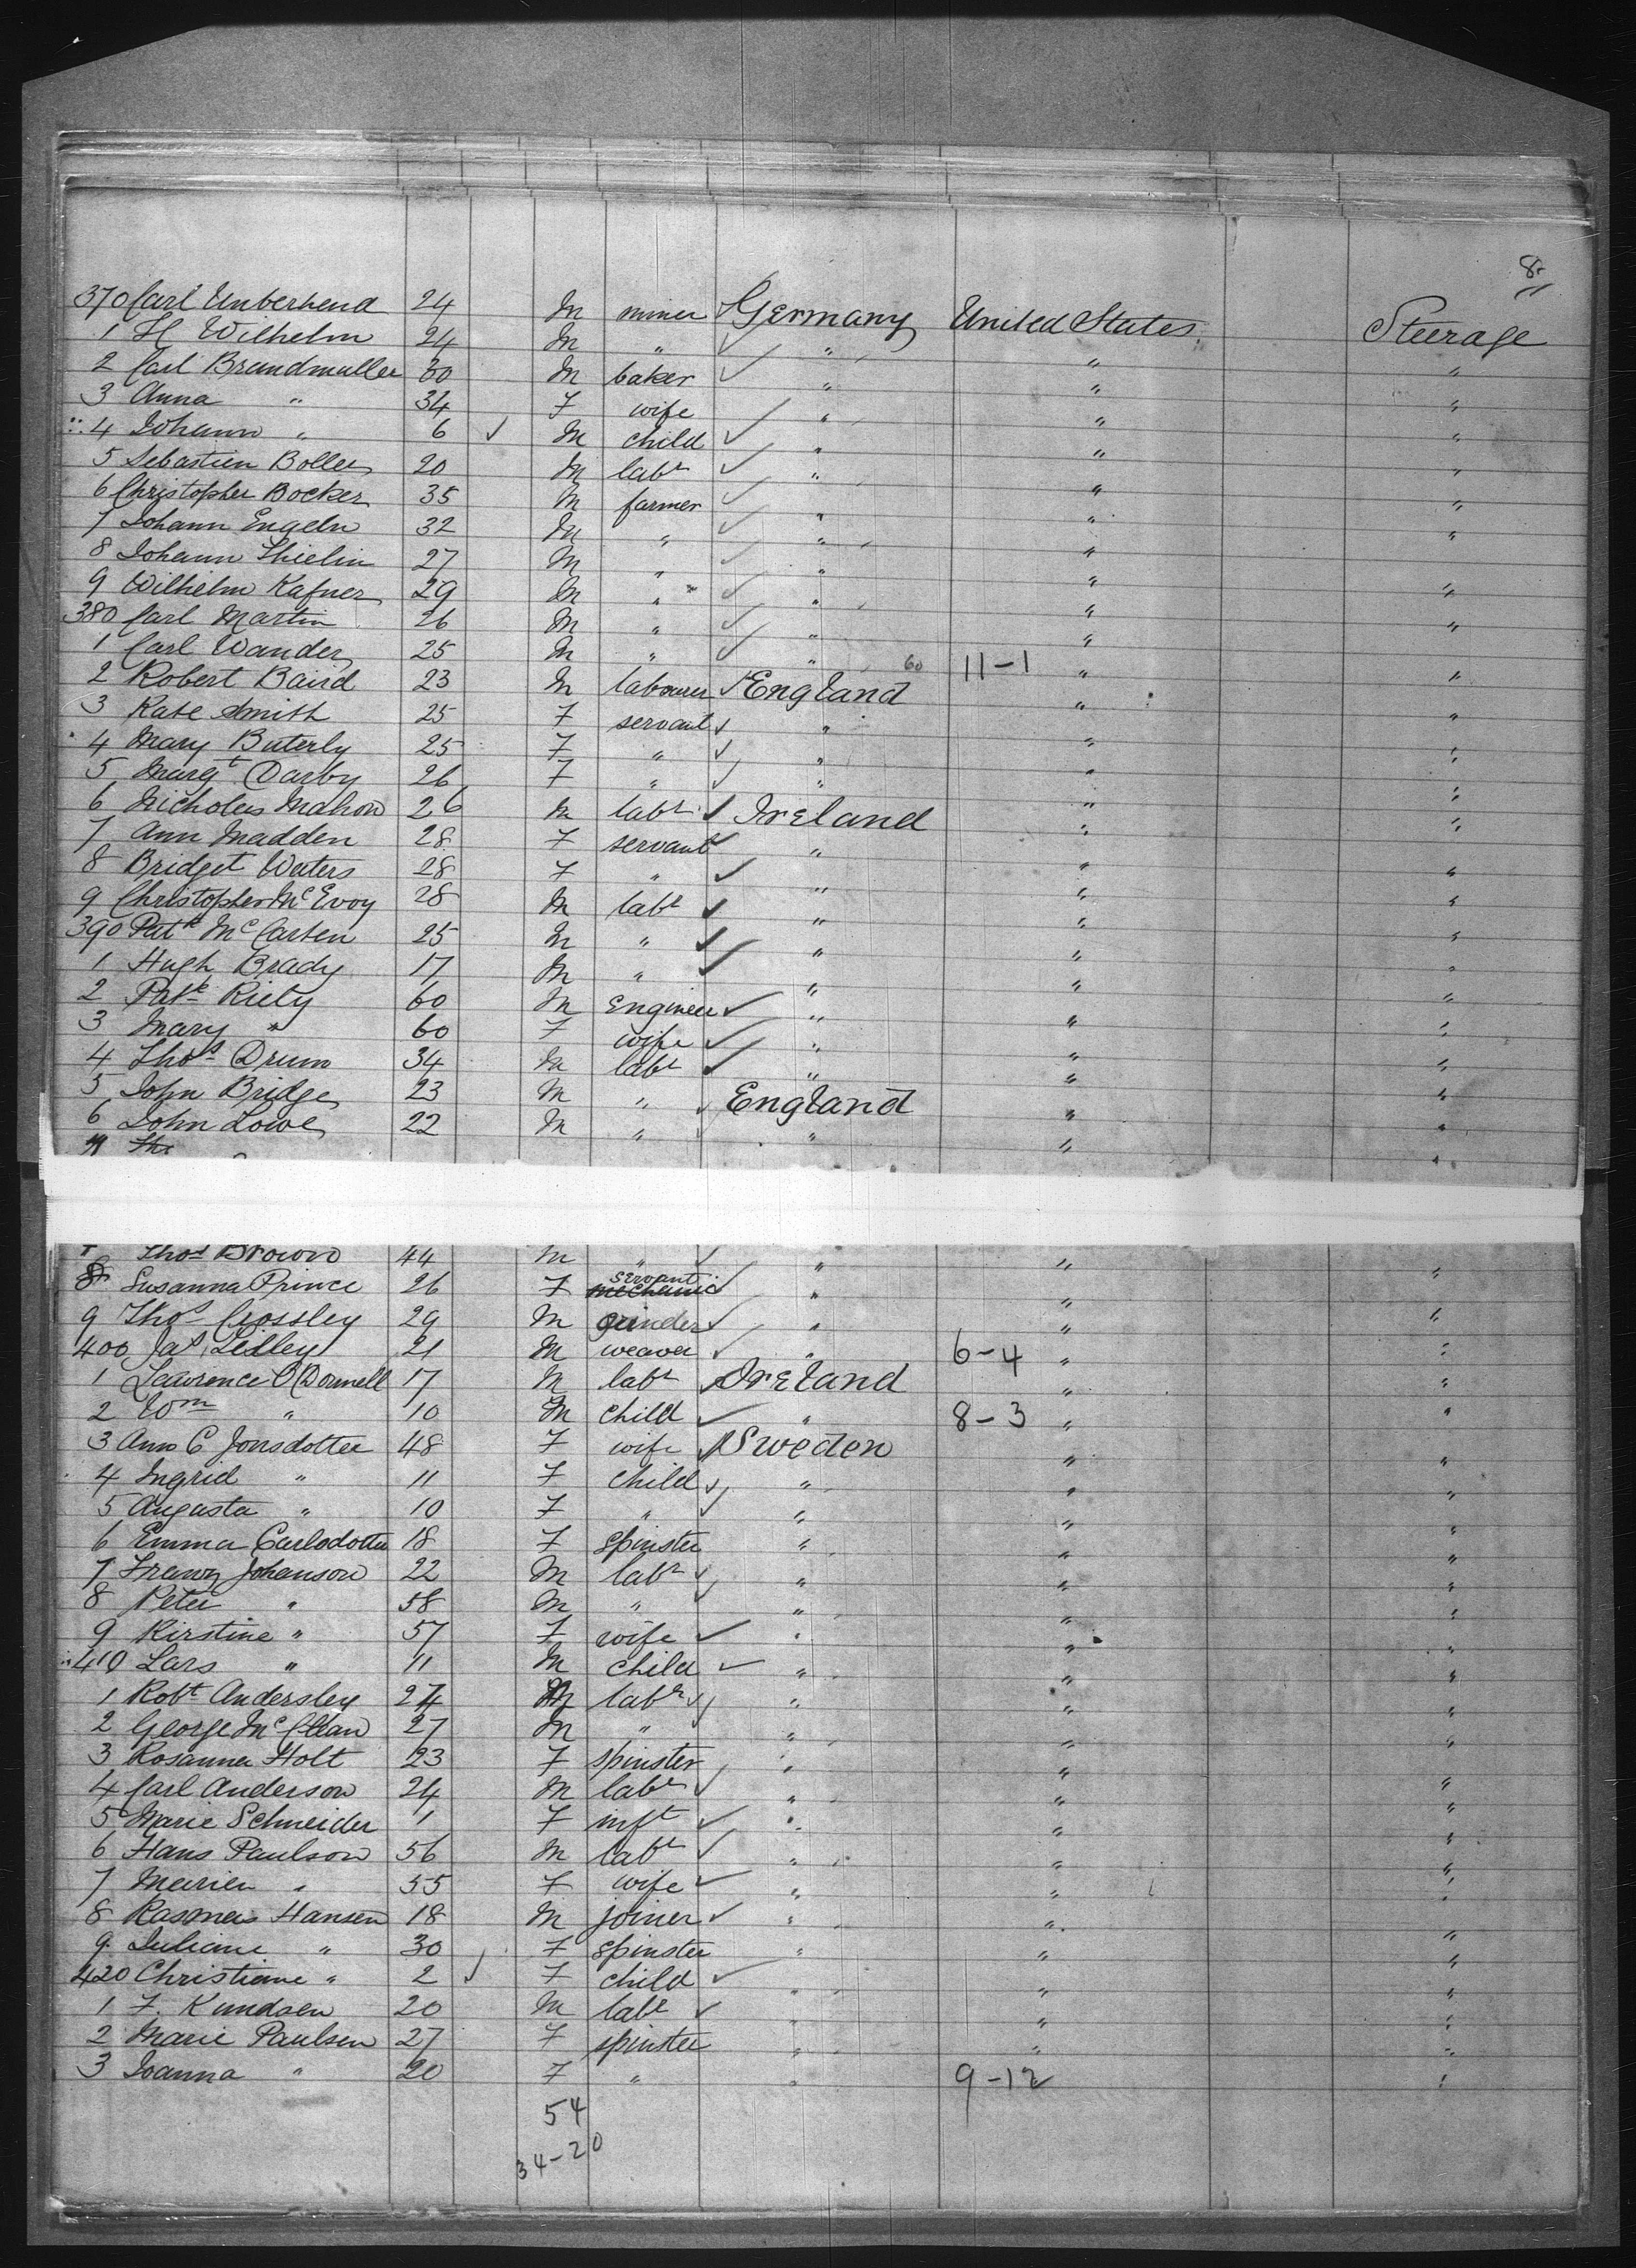 8
370 Carl Umberhend 24 M miner Germany United States Steerage
1 H Wilhelm 24 M " " " "
2 Carl Brandmuller 30 M baker " " "
3 Anna " 34 F wife " " "
4 Johann " 6 M child " " "
5 Sebastien Boller 20 M labr " " "
6 Christopher Bocker 35 M farmer " " "
7 Johann Engeln 32 M " " " "
8 Johann Thielin 27 M " " " "
9 Wilhelm Kafner 29 M " " " "
380 Carl Martin 26 M " " " "
1 Carl Wander 25 M " " 60 11-1 " "
2 Robert Baird 23 M labourer England " "
3 Kate Smith 25 F servant " " "
4 Mary Buterly 25 F " " " "
5 Margt Darby 26 F " " " "
6 Nicholas Mahon 26 M labr Ireland " "
7 Ann Madden 28 F servant " " "
8 Bridget Waters 28 F " " " "
9 Christopher McEvoy 28 M labr " " "
390 Patk McCarten 25 M " " " "
1 Hugh Brady 17 M " " " "
2 Patk Riety 60 M Engineer " " "
3 Mary " 60 F wife " " "
4 Thos Drum 34 M labr " " "
5 John Bridge 23 M " England " "
6 John Lowe 22 M " " " "
7 Thos Brown 44 M " " " "
8 Susanna Prince 26 F mechanic servant " " "
9 Thos Crossley 29 M grinder " " "
400 Jas Lilley 21 M weaver " 6-4 " "
1 Lawrence O'Donnell 17 M labr Ireland " "
2 Wm " 10 M child " 8-3 " "
3 Ann C Jonsdotter 48 F wife Sweden " "
4 Ingrid " 11 F child " " "
5 Augusta " 10 F " " " "
6 Emma Carlsdotter 18 F spinster " " "
7 Franz Johanson 22 M labr " " "
8 Peter " 58 M " " " "
9 Kirstine " 57 F wife " " "
410 Lars " 11 M child " " "
1 Robt Andersley 24 M labr " " "
2 George McClean 27 M " " " "
3 Rosanna Holt 23 F spinster " " "
4 Carl Anderson 24 M labr " " "
5 Marie Schneider 1 F inft " " "
6 Hans Paulson 56 M labr " " "
7 Marien " 55 F wife " " "
8 Rasmus Hansen 18 M joiner " " "
9 Juliane " 30 F spinster " " "
420 Christiane " 2 F child " " "
1 F. Knudsen 20 M labr " " "
2 Marie Paulsen 27 F spinster " " "
3 Joanna " 20 F " " 9-12 "
54
34-20